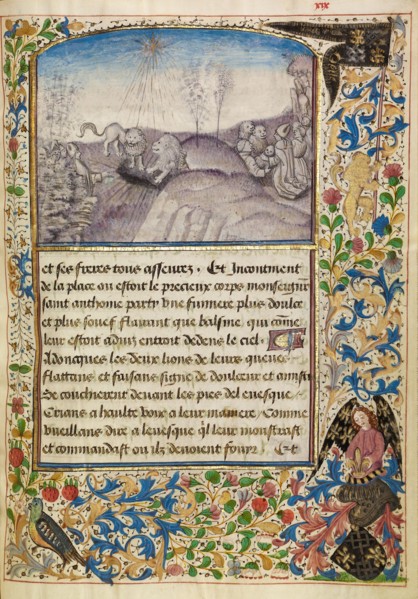 xix
et ses freres tous asseurez. Et Incontinent
de la place ou estoit le precieux corps monseignr
saint anthoine party vne fumiere plus doulce
et plus souef flairant que balsme, qui come
leur estoit aduiz entroit dedens le ciel.
Adoncques les deux lions de leurs queues
flattans et faisans signe de douleur et ainsi
se coucherent deuant les pies del euesque
Crians a haulte voix a leur maniere, Comme
vueillans dire a leuesque ql leur monstrast
et commandast ou ilz deuoient fouyr. Et